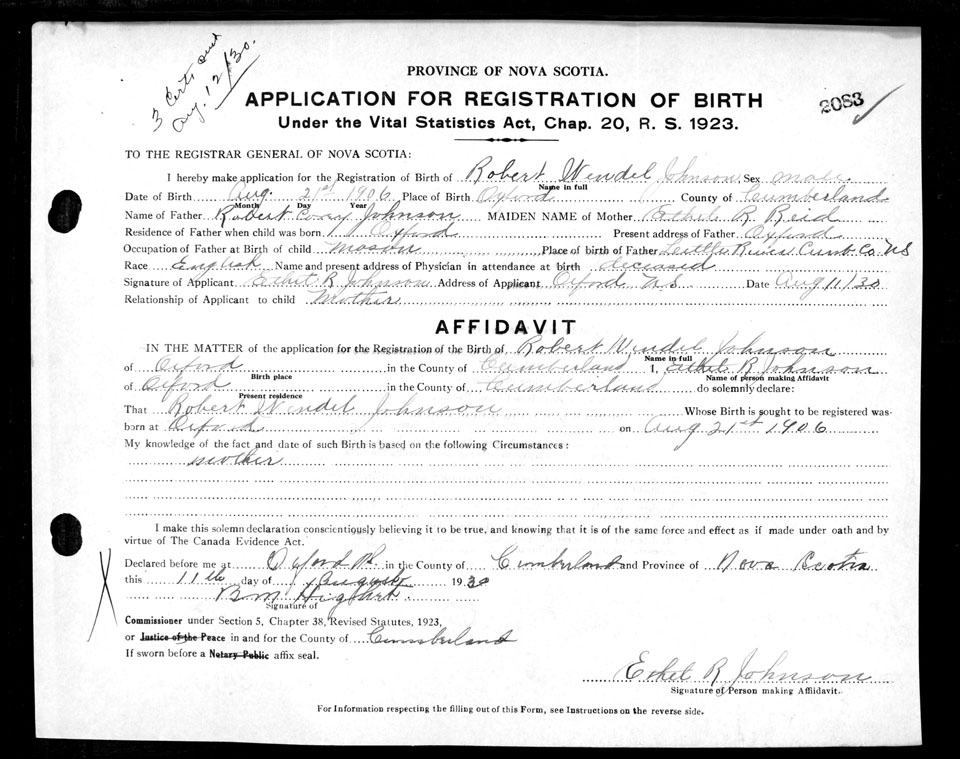 3 Certs sent
Aug. 12/30.
PROVINCE OF NOVA SCOTIA.
APPLICATION FOR REGISTRATION OF BIRTH
2083
Under the Vital Statistics Act, Chap. 20, R. S. 1923.
TO THE REGISTRAR GENERAL OF NOVA SCOTIA:
I hereby make application for the Registration of Birth of Robert Wendel Johnson Sex male
Name in full
Date of Birth Aug. 21st 1906 Place of Birth Oxford County of Cumberland
Month Day Year
Name of Father Robert Johnson MAIDEN NAME of Mother Ethel R Reid
Residence of Father when child was born Oxford Present address of Father Oxford
Occupation of Father at Birth of child Mason Place of birth of Father River Cumb. Co. NS
Race English Name and present address of Physician in attendance at birth deceased
Signature of Applicant Ethel R Johnson Address of Applicant Oxford NS Date Aug 11/30
Relationship of Applicant to child Mother
AFFIDAVIT
IN THE MATTER of the application for the Registration of the Birth of Robert Wendel Johnson
Name in full
of Oxford in the County of Cumberland I, Ethel R Johnson
Birth place Name of person making Affidavit
of Oxford in the County of Cumberland do solemnly declare:
Present residence
That Robert Wendel Johnson Whose Birth is sought to be registered was
born at Oxford on Aug 21st 1906
My knowledge of the fact and date of such Birth is based on the following Circumstances:
mother
I make this solemn declaration conscientiously believing it to be true, and knowing that it is of the same force and effect as if made under oath and by
virtue of The Canada Evidence Act.
Declared before me at Oxford in the County of Cumberland and Province of Nova Scotia
this 11th day of August 1930
B M
Signature of
Commissioner under Section 5, Chapter 38, Revised Statutes, 1923,
or Justice of the Peace in and for the County of Cumberland
If sworn before a Notary Public affix seal.
Ethel R Johnson
Signature of Person making Affidavit.
For Information respecting the filling out of this Form, see Instructions on the reverse side.